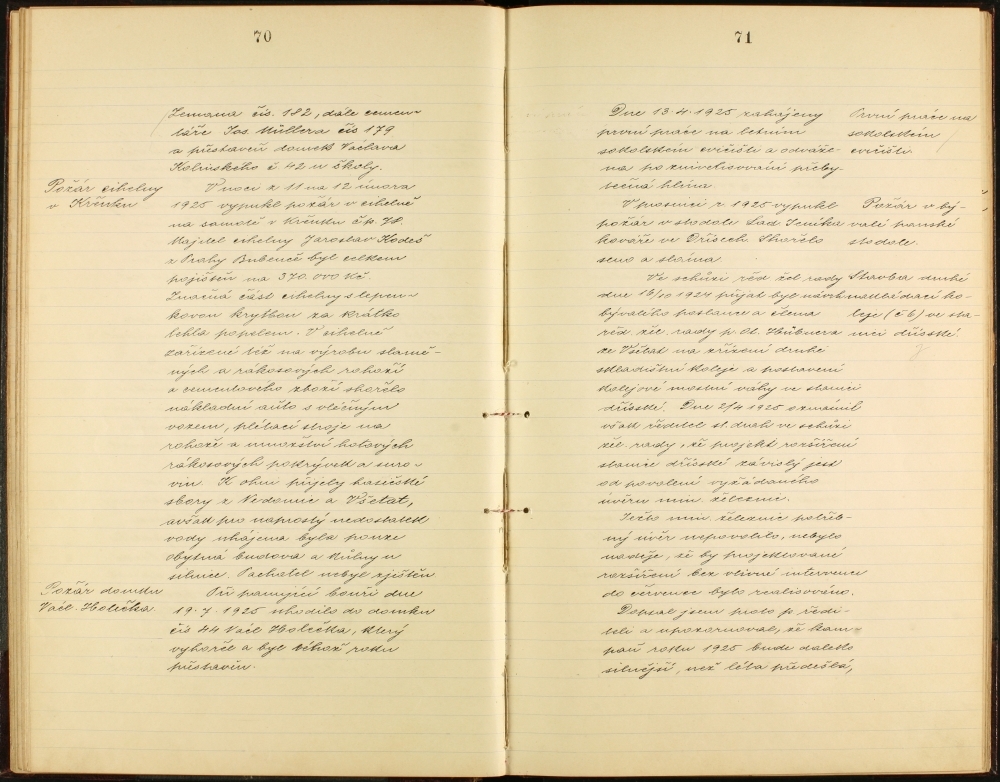 70
Zemana čís. 182, dále cemen-
táře Jos. Müllera čís 179
a přístaven domek Václava
Kolínského č 42 u školy.
Požár cihelny
v Křenku
V noci z 11 na 12 února
1925 vypukl požár v cihelně
na samotě v Křenku čp.
Majitel cihelny Jaroslav Kodeš
z Prahy Bubenče byl celkem
pojištěn na 370.000 Kč.
Značná část cihelny s lepen-
kovou krytbou za krátko
lehla popelem. V cihelně
zařízené též na výrobu slamě-
ných a rákosových rohoží
a cementového zboží shořelo
nákladní auto s vlečným
vozem, pletací stroje na
rohože a množství hotových
rákosových pokrývek a suro-
vin. K ohni přijely hasičské
sbory z Nedomic a Všetat,
avšak pro naprostý nedostatek
vody uhájena byla pouze
obytná budova a kůlny u
silnice. Pachatel nebyl zjištěn
Požár domku
Václ. Holečka
Při panující bouři dne
19.7.1925 uhodilo do domku
čís 44 Václ Holečka, který
vyhořel a byl téhož roku
přistavěn.
71
Dne 13.4.1925 zahájeny
první práce na letním
sokolském cvičišti a odváže-
na po znivelisování přeby-
tečná hlína.
První práce na
sokolském
cvičišti.
V prosinci r 1925 vypukl
požár v stodole Lad Jeníka
kováře ve Dřísech. Shořelo
seno a sláma.
Požár v bý-
valé panské
stodole.
Ve schůzi řed žel. rady
dne 16/10 1924 přijat byl návrh
bývalého poslance a člena
řed. žel. rady p. Al. Hübnera
ze Všetat na zřízení druhé
skladištní koleje a postavení
kolejové mostní váhy ve stanici
dříské. Dne 2/4 1925 oznámil
však ředitel st. drah ve schůzi
žel. rady, že projekt rozšíření
stanice dříské závislý jest
od povolení vyžádaného
úvěru min železnic.
Stavba druhé
nakládací ko-
leje (č 6) ve sta-
nici dříské.
Ježto min. železnic potřeb-
ný úvěr nepovolilo, nebylo
naděje, že by projektované
rozšíření bez vlivné intervence
do července bylo realisováno.
Dopsal jsem proto p. ředi-
teli a upozorňoval, že kam-
paň roku 1925 bude daleko
silnější, než léta předešlá,